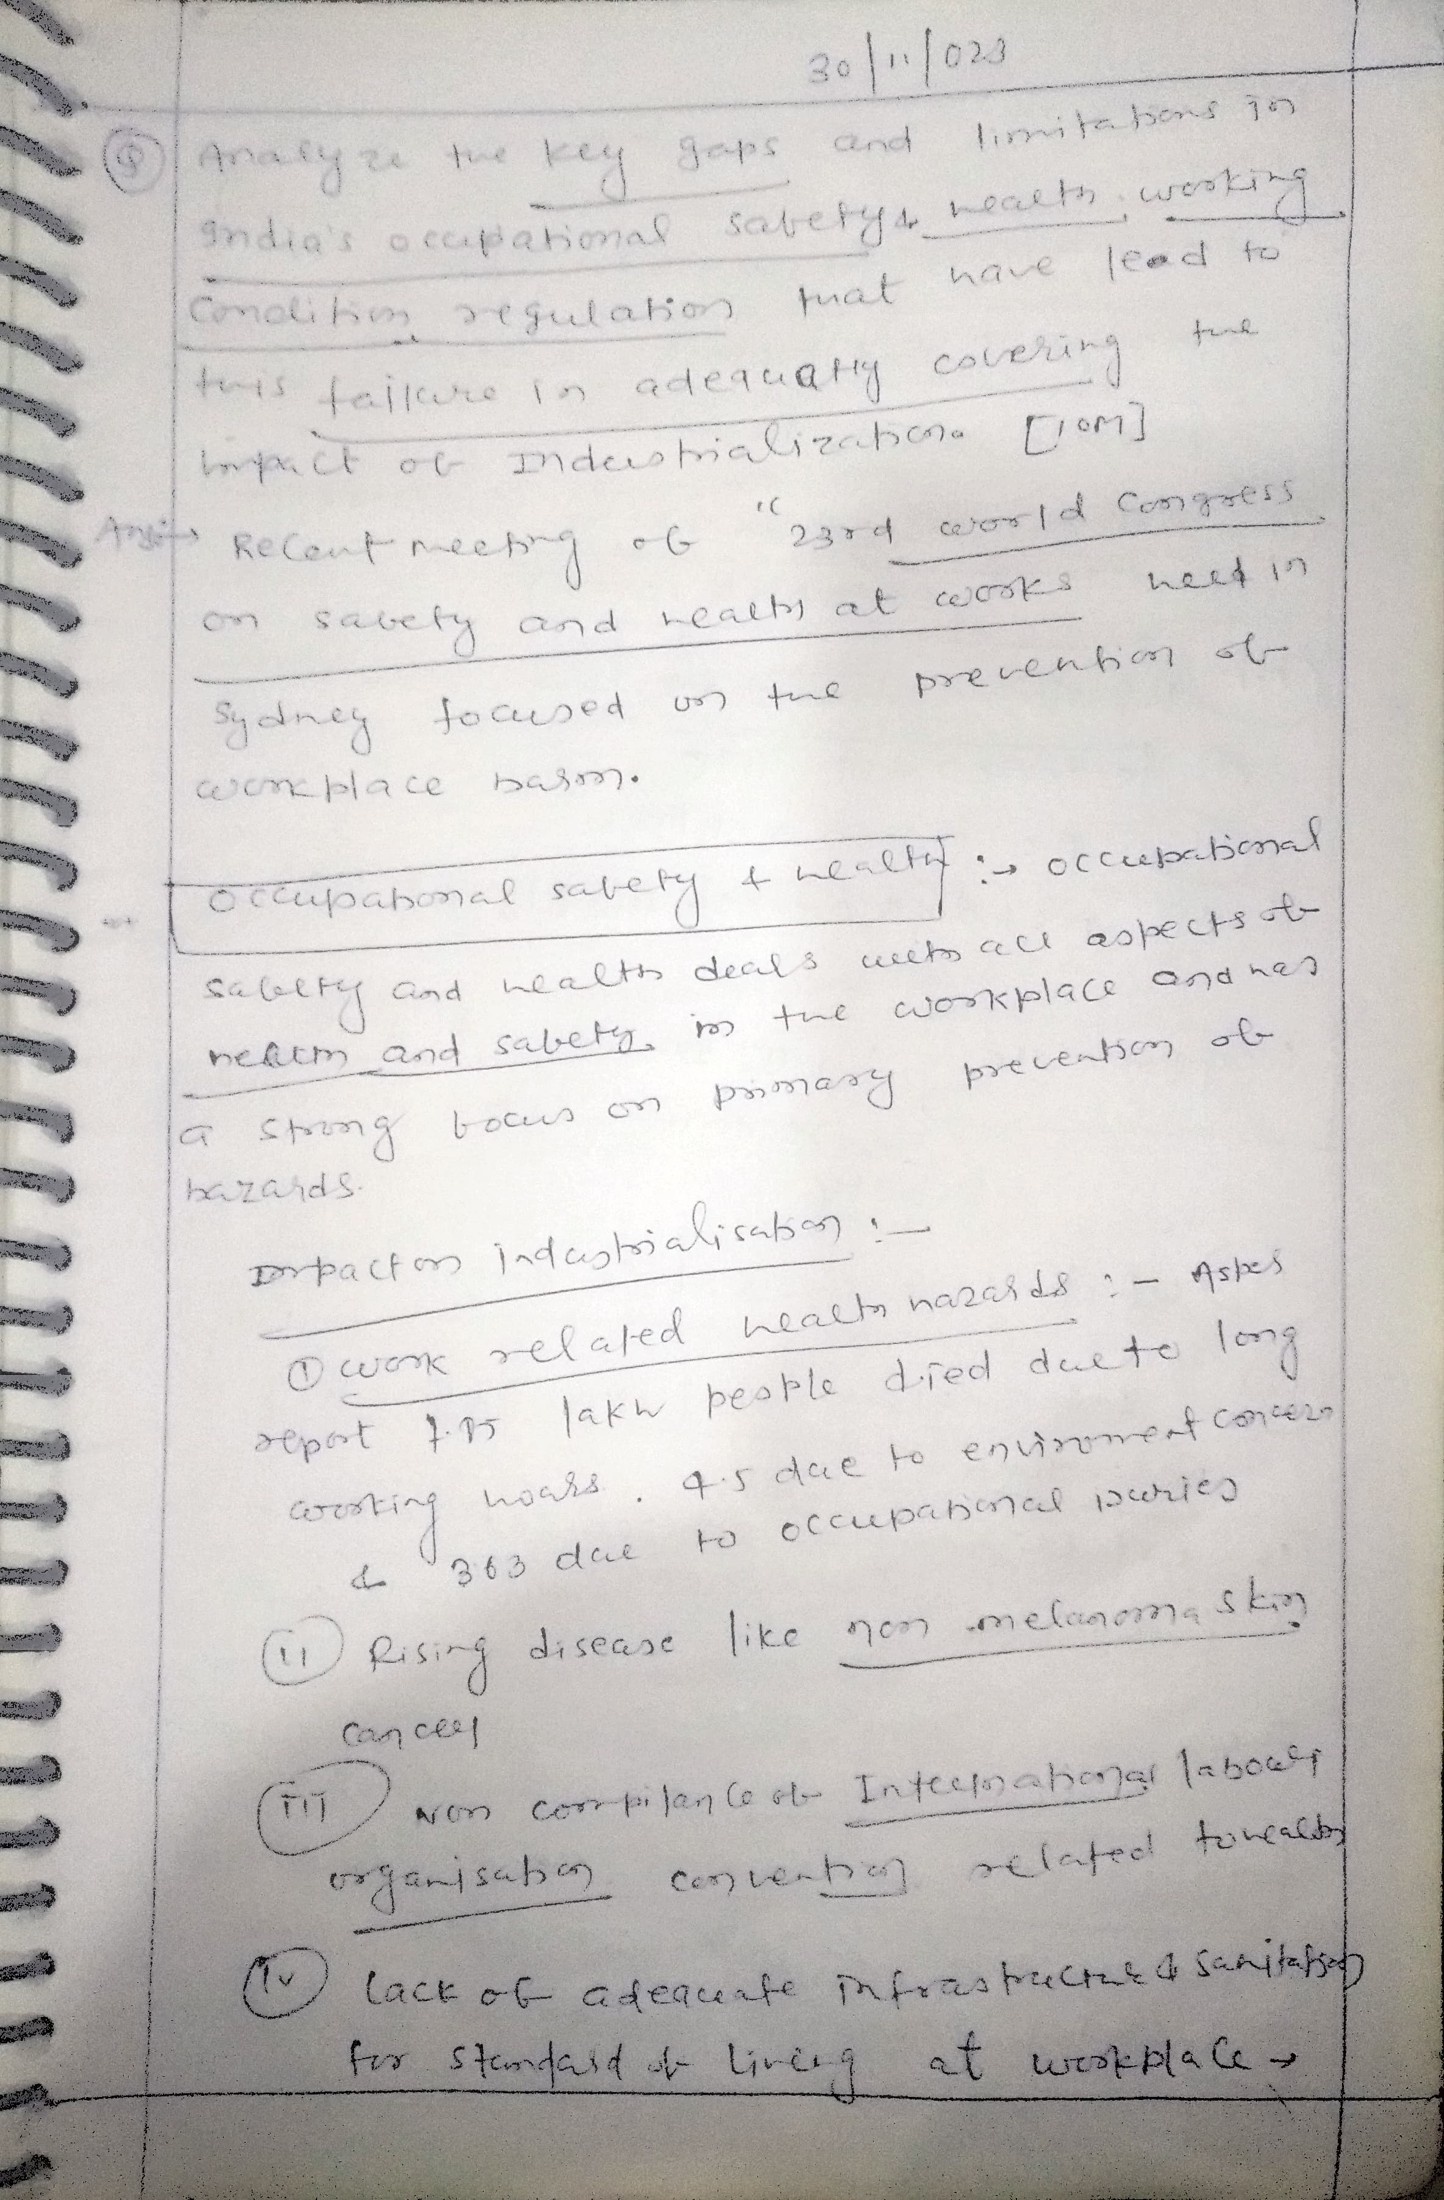 30/11/023
Q Analyze the key gaps and limitations in
India's occupational safety & health, working
Condition regulation that have lead to
this failure in adequatly covering the
impact of Industrialization. [10M]
Ans:→ Recent meeting of "23rd world Congress
on safety and health at works held in
Sydney focused on the prevention of
workplace harm.
occupational safety & health :→ occupational
safety and health deals with all aspects of
health and safety in the workplace and has
a strong focus on primary prevention of
hazards.
Impact on industrialisation :-
① work related health hazards :- As per
report 7.45 lakh people died due to long
working hours. 4.5 due to enviroment concern
& 363 due to occupational
(ii) Rising disease like non melanoma skin
cancer
(III) Non compilance of International labour
organisation convention related to health
(iv) lack of adequate infrastructure & sanitation
for standard of living at workplace →